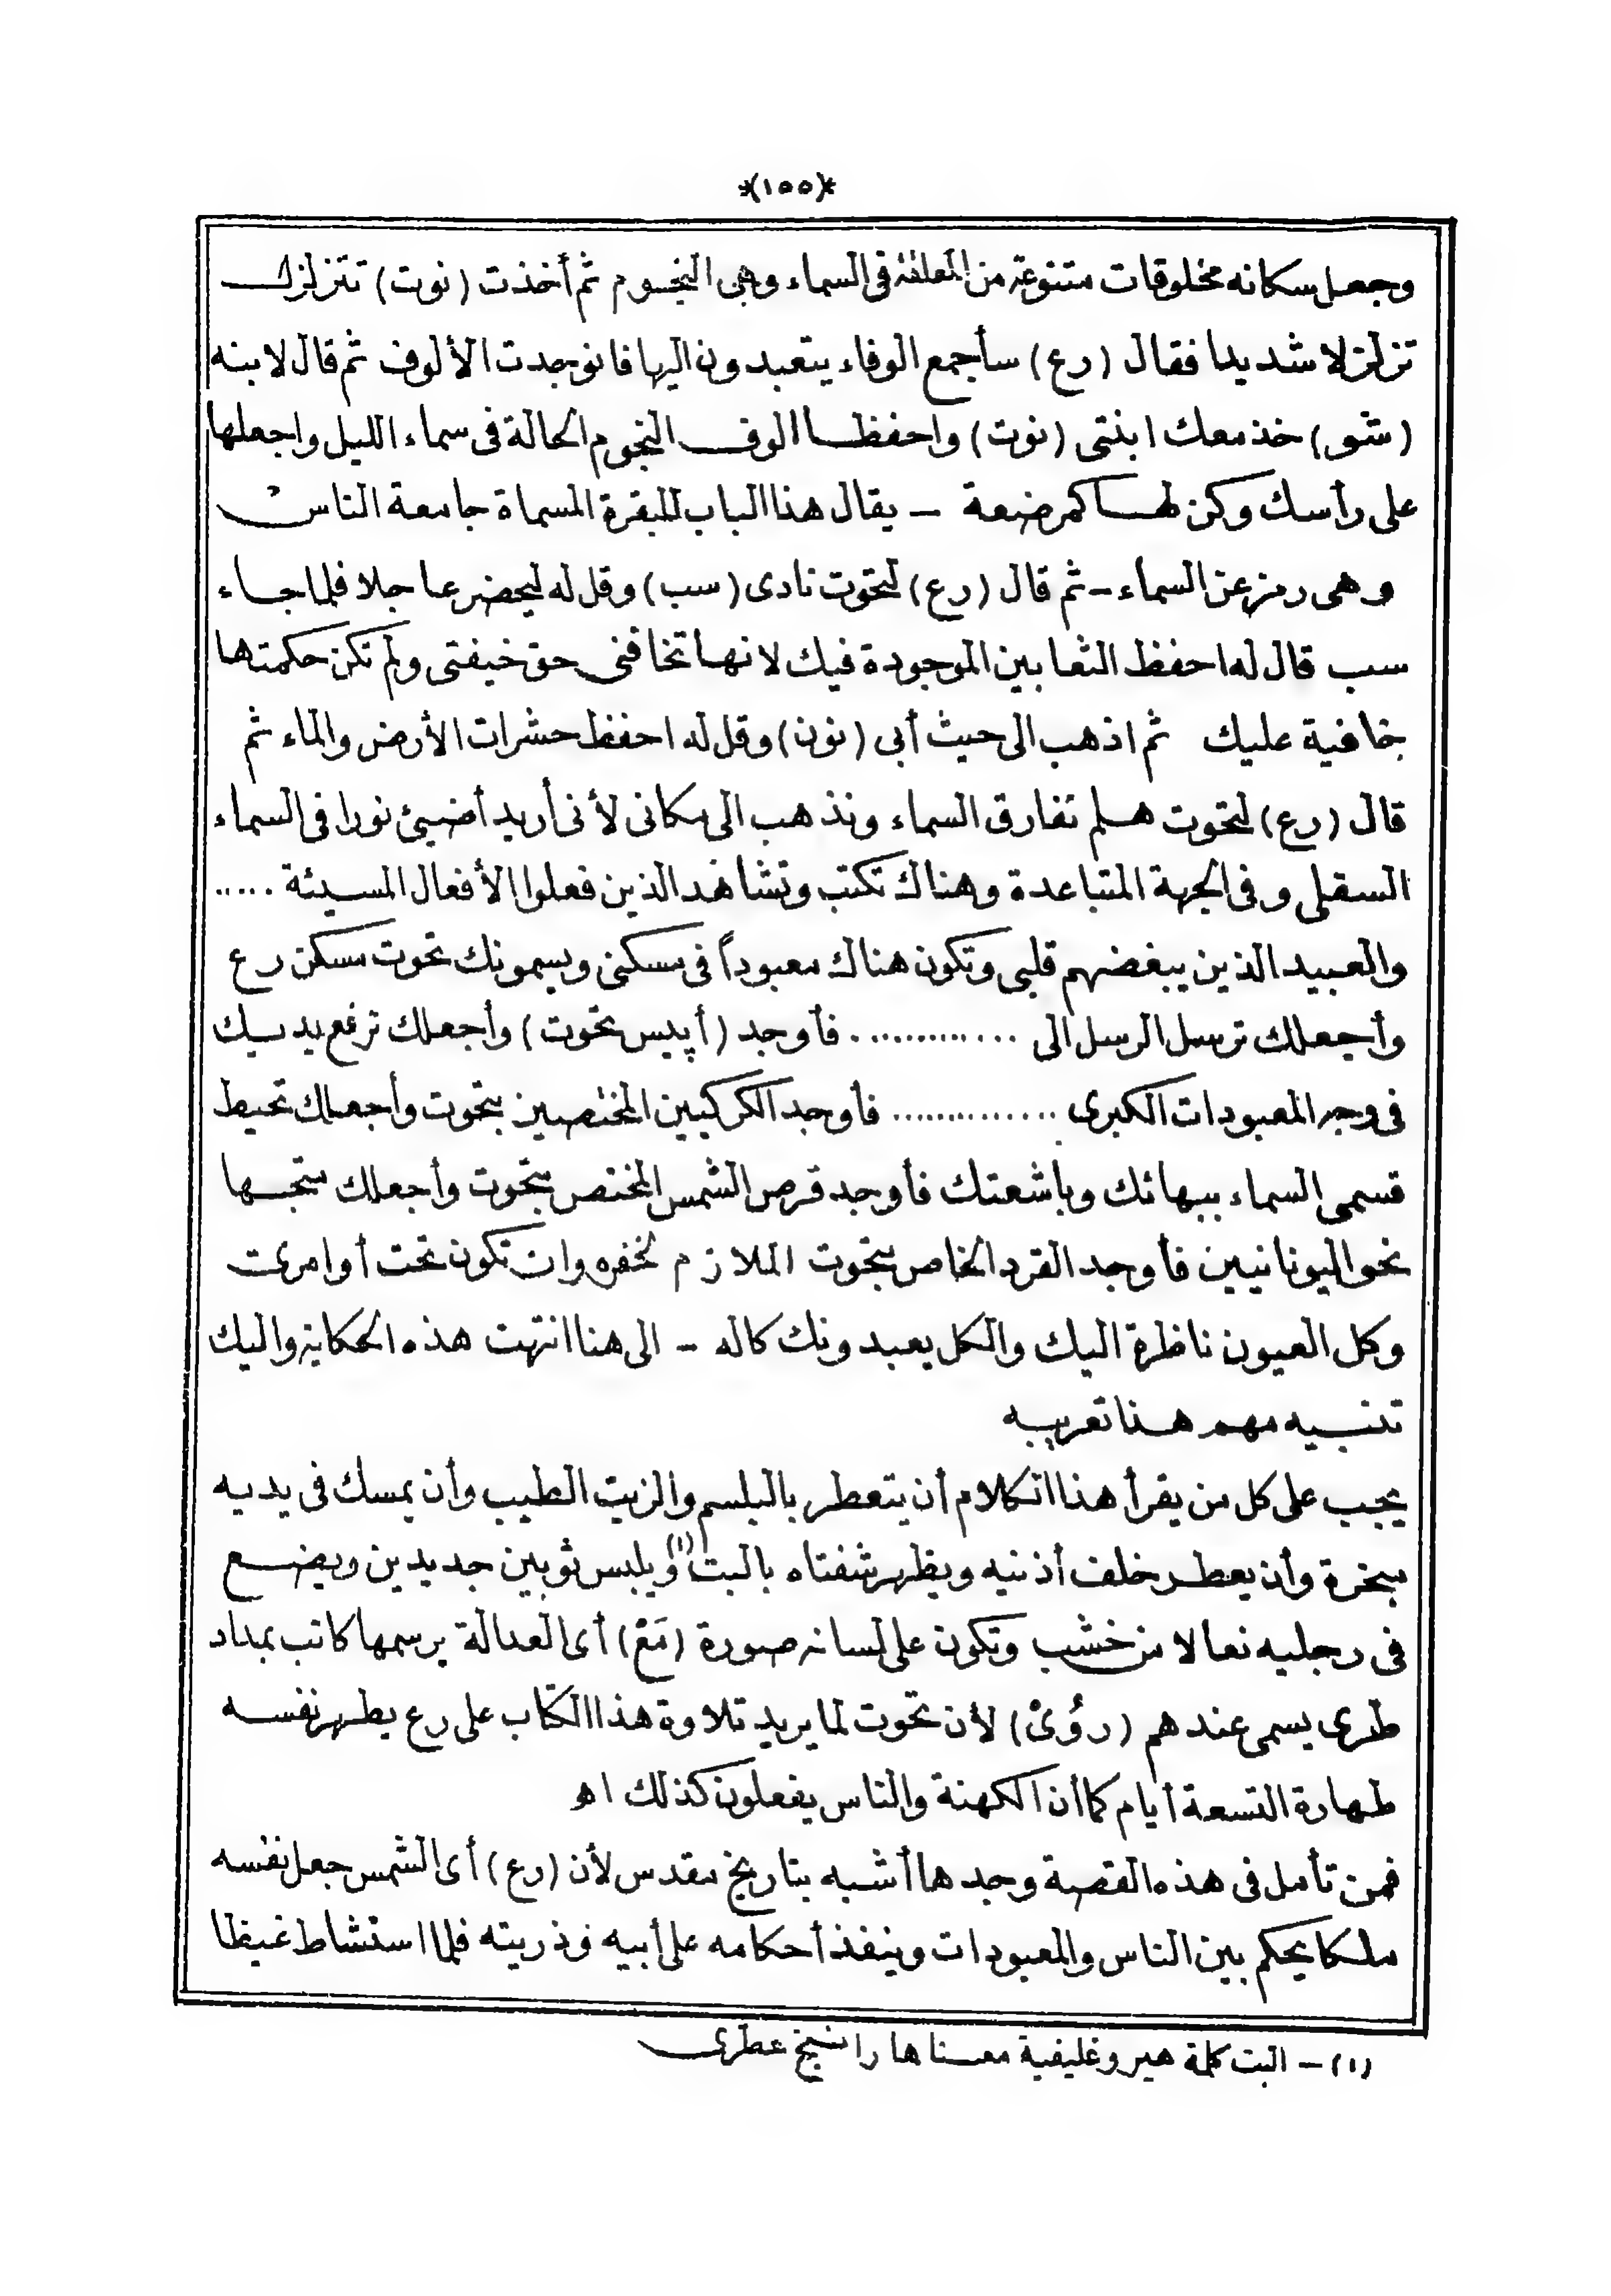 *(١٥٥)*
وجعل سكانه مخلوقات متنوعة من المعلقة فى السماء وهى النجوم ثم أخذت (نوت) تتزلزل
تزلزلا شديدا فقال (رع) سأجمع الوفاء يتعبدون اليها فانوجدت الألوف ثم قال لابنه
(شو) خذ معك ابنتى (نوت) واحفظا الوف النجوم الحالة فى سماء الليل واجعلها
على رأسك وكن لها كمرضعة – يقال هذا الباب للبقرة المسماة جامعة الناس
وهى رمز عن السماء – ثم قال (رع) لتحوت نادى (سب) وقل له ليحضر عاجلا فلما جاء
سب قال له احفظ الثعابين الموجودة فيك لانها تخافنى حق خيفتى ولم تكن حكمتها
خافية عليك ثم اذهب الى حيث أبى (نون) وقل له احفظ حشرات الأرض والماء ثم
قال (رع) لتحوت هلم نفارق السماء ونذهب الى مكانى لأنى أريد أضيئ نورا فى السماء
السفلى وفى الجهة المتباعدة وهناك تكتب وتشاهد الذين فعلوا الأفعال المسيئة .....
والعبيد الذين يبغضهم قلبى وتكون هناك معبوداً فى مسكنى ويسمونك تحوت مسكن رع
وأجعلك ترسل الرسل الى ............. فأوجد (أپيس تحوت) وأجعلك ترفع يديك
فى وجه المعبودات الكبرى .............. فأوجد الكركيين المختصين بتحوت وأجعلك تحيط
قسمى السماء ببهائك وباشعتك فأوجد قرص الشمس المختص بتحوت وأجعلك ستجبها
نحو اليونانيين فأوجد القرد الخاص بتحوت الملازم لخفره وان تكون تحت أوامرى
وكل العيون ناظرة اليك والكل يعبدونك كاله – الى هنا انتهت هذه الحكاية واليك
تنبيه مهم هذا تعريبه
يجب على كل من يقرأ هذا الكلام أن يتعطر بالبلسم والزيت الطيب وأن يمسك فى يديه
مبخرة وأن يعطر خلف أذنيه ويظهر شفتاه بالبت(١) ويلبس ثوبين جديدين ويضع
فى رجليه نعالا من خشب وتكون على لسانه صورة (مَعْ) أى العدالة يرسمها كاتب بمداد
طرى يسمى عندهم (رؤُىْ) لأن تحوت لما يريد تلاوة هذا الكتاب على رع يطهر نفسه
طهارة التسعة أيام كما أن الكهنة والناس يفعلون كذلك اه
فمن تأمل فى هذه القصة وجدها أشبه بتاريخ مقدس لأن (رع) أى الشمس جعل نفسه
ملكا يحكم بين الناس والمعبودات وينفذ أحكامه على أبيه وذريته فلما استشاط غيظا
(١) – البت كلمة هيروغليفية معناها راتنج عطرى